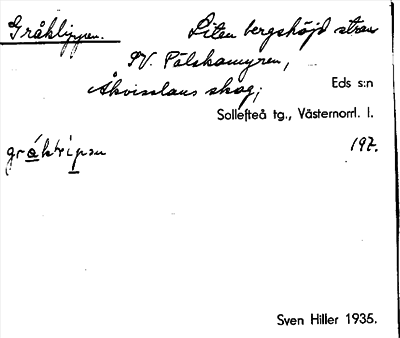 Gråklippen. Liten bergshöjd strax
SV. Pålskamyren,
skog; Eds s:n
Sollefteå tg., Västernorrl. l.
197.
Sven Hiller 1935.